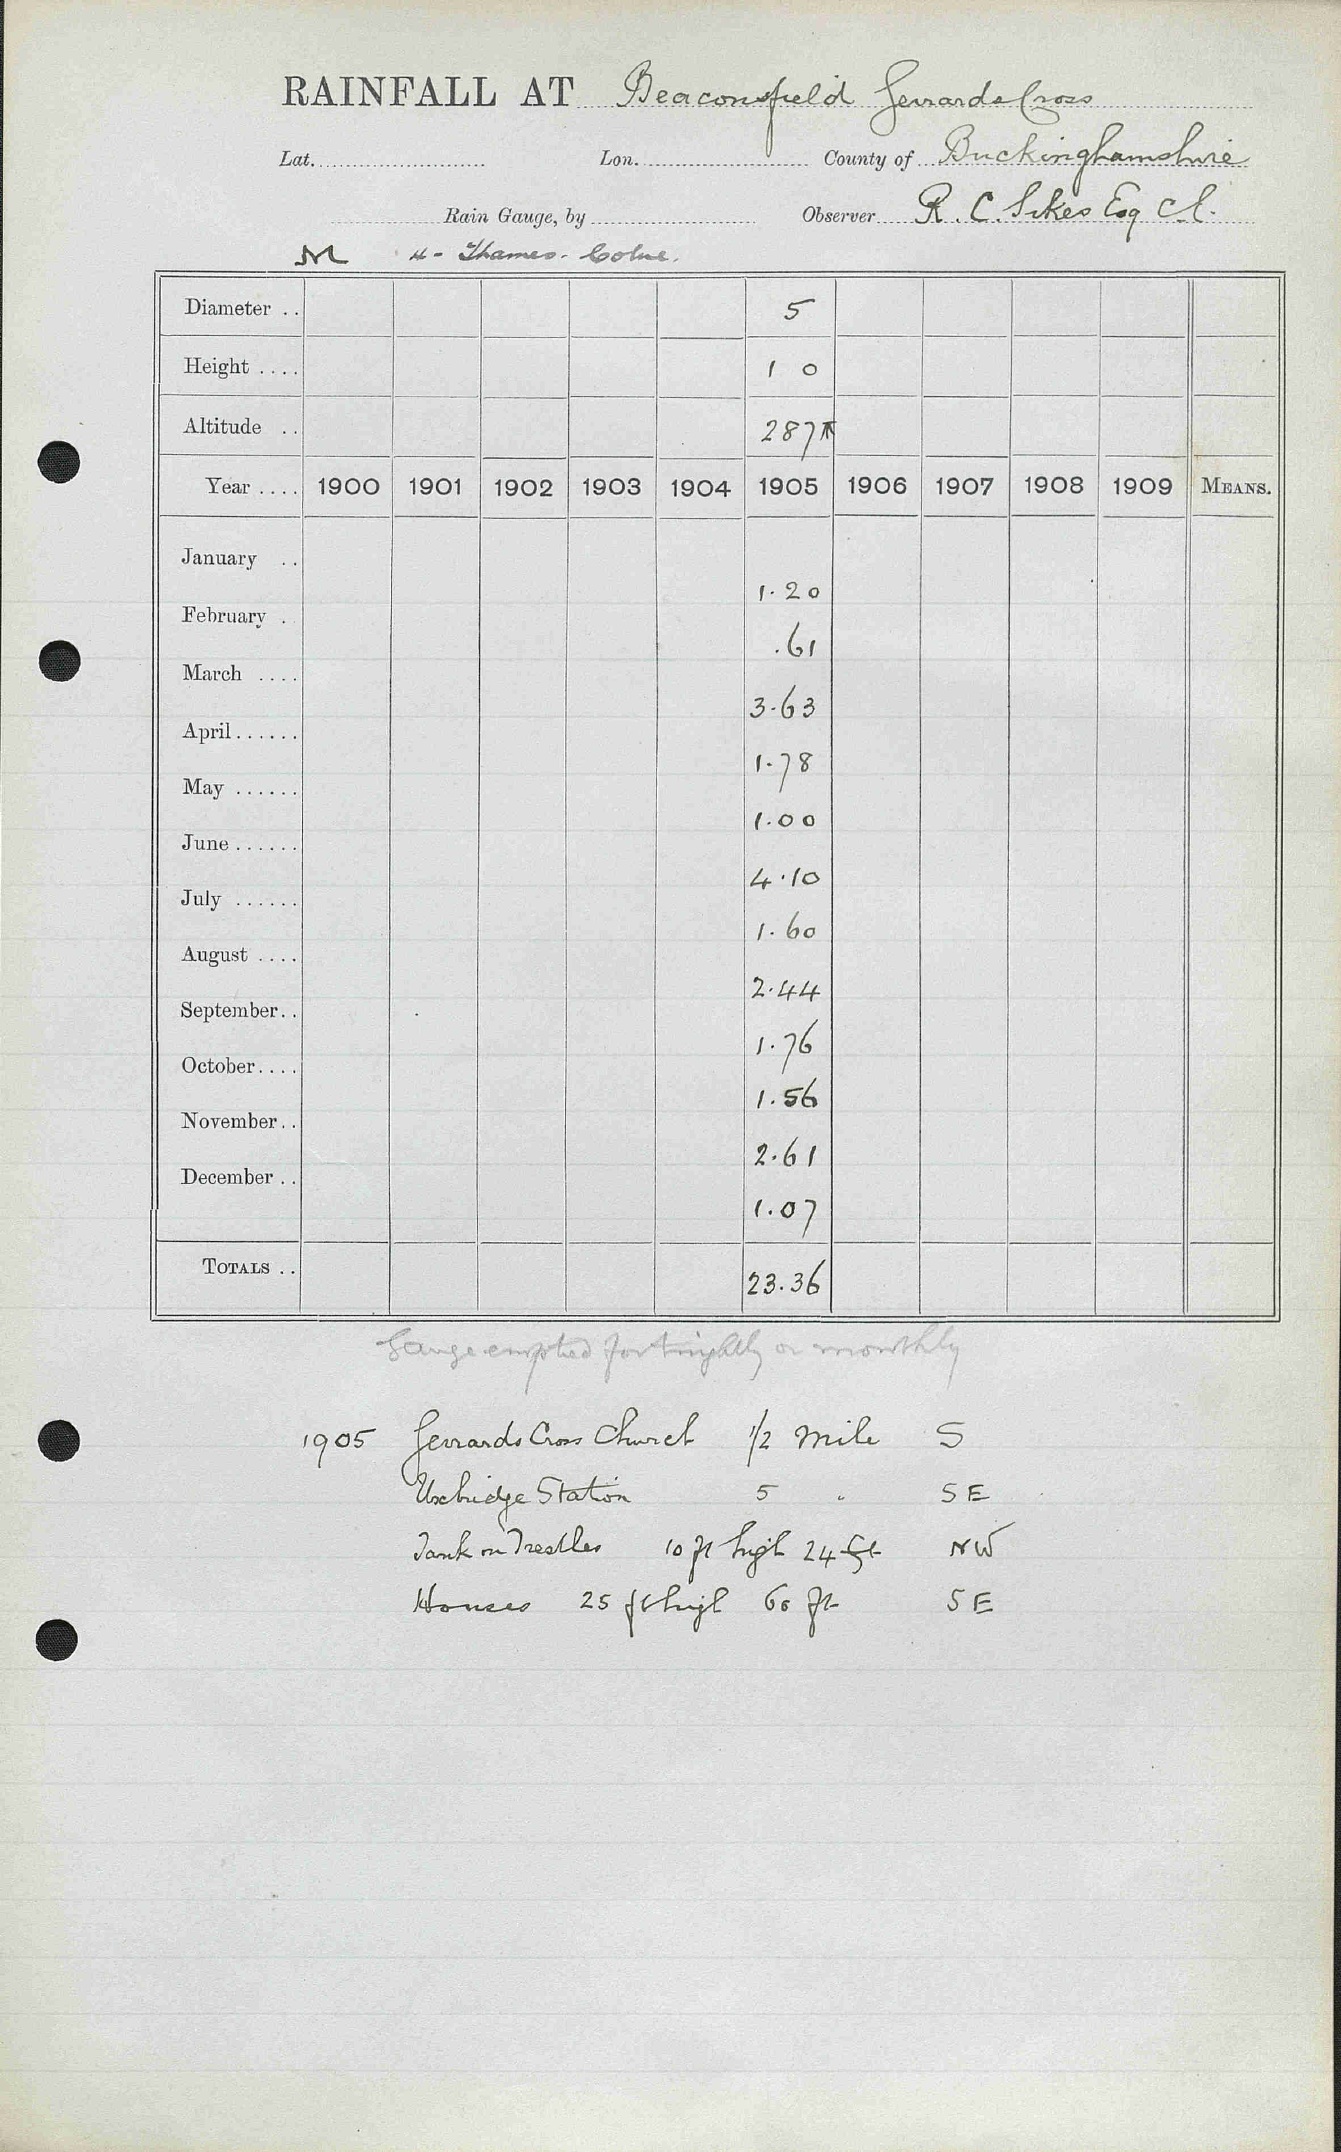 RAINFALL AT Beaconsfield Gerrards Cross
Lat. Lon. County of Buckinghamshire
Rain Gauge, by Observer R. C. Sikes Esq C.E.
M 4 - Thames - Colne.
Diameter .. 5
Height .... 1 0
Altitude .. 287
Year .... 1900 1901 1902 1903 1904 1905 1906 1907 1908 1909 MEANS.
January .. 1.20
February . .61
March .... 3.63
April...... 1.78
May ...... 1.00
June...... 4.10
July ...... 1.60
August .... 2.44
September.. 1.76
October.... 1.56
November.. 2.61
December .. 1.07
TOTALS .. 23.36
Gauge emptied fortnightly or monthly
1905 Gerrards Cross Church 1/2 mile S
Uxbridge Station 5 " SE
Tank on Trestles 10 ft high 24 ft NW
Houses 25 ft high 60 ft SE